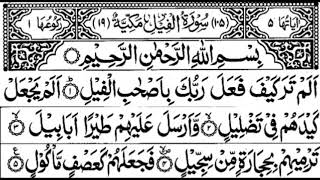 اٰیاتها ۵ (۱۰۵) سُوْرَةُ الْفِیْلِ مَكِّیَّةٌ (۱۹) رکوعها ۱
بِسْمِ اللّٰهِ الرَّحْمٰنِ الرَّحِیْمِ
اَلَمْ تَرَ كَیْفَ فَعَلَ رَبُّكَ بِاَصْحٰبِ الْفِیْلِ ۱ اَلَمْ یَجْعَلْ
كَیْدَهُمْ فِیْ تَضْلِیْلٍ ۲ وَّاَرْسَلَ عَلَیْهِمْ طَیْرًا اَبَابِیْلَ ۳
تَرْمِیْهِمْ بِحِجَارَةٍ مِّنْ سِجِّیْلٍ ۴ فَجَعَلَهُمْ كَعَصْفٍ مَّاْكُوْلٍ ۵